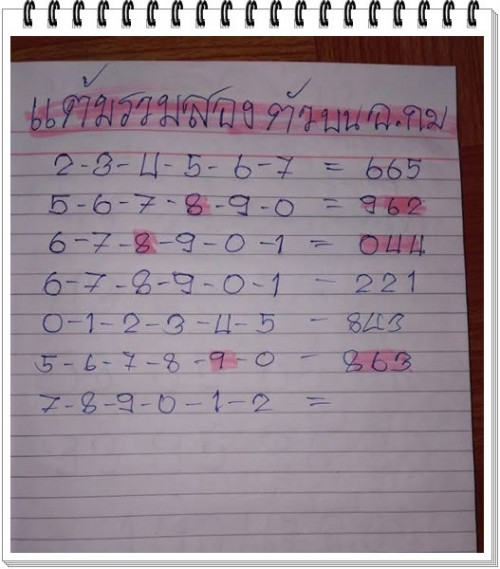 แต้มรวมสองตัวบน ฉ.กม
2-3-4-5-6-7 = 665
5-6-7-8-9-0 = 962
6-7-8-9-0-1 = 044
6-7-8-9-0-1 - 221
0-1-2-3-4-5 - 843
5-6-7-8-9-0 - 863
7-8-9-0-1-2 =